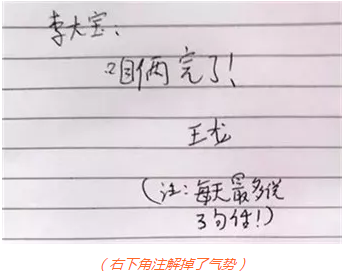 李大宝：
咱俩完了！
王龙
（注：每天最多说
3句话！）
（右下角注解掉了气势）